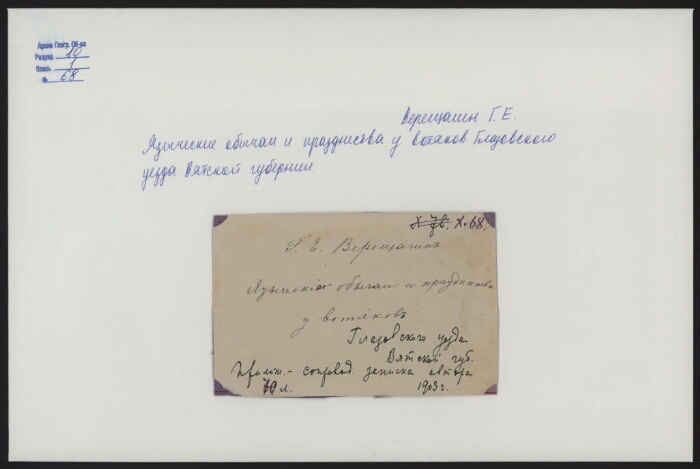 Архив Геогр. Об-ва
Разряд 10
Опись 1
№ 68
Верещагин Г.Е.
Языческие обычаи и празднества у вотяков Глазовского
уезда Вятской губернии
X. 68.
Г. Е. Верещагинъ
Языческiе обычаи и празднества
у вотяковъ
Глазовского уезда
Вятской губ.
Прилож. - сопровод. записка автора
70 л. 1903 г.